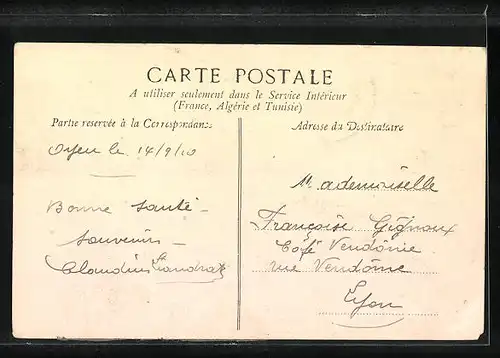 CARTE POSTALE
A utiliser seulement dans le Service Intérieur
(France, Algérie et Tunisie)
Partie reservée à la Correspondance
Oyeu le 14/9/10
Bonne Santé -
Souvenir -
Claudius
Adresse du Destinataire
Mademoiselle
Françoise Gignoux
Café Vendôme
rue Vendôme
Lyon